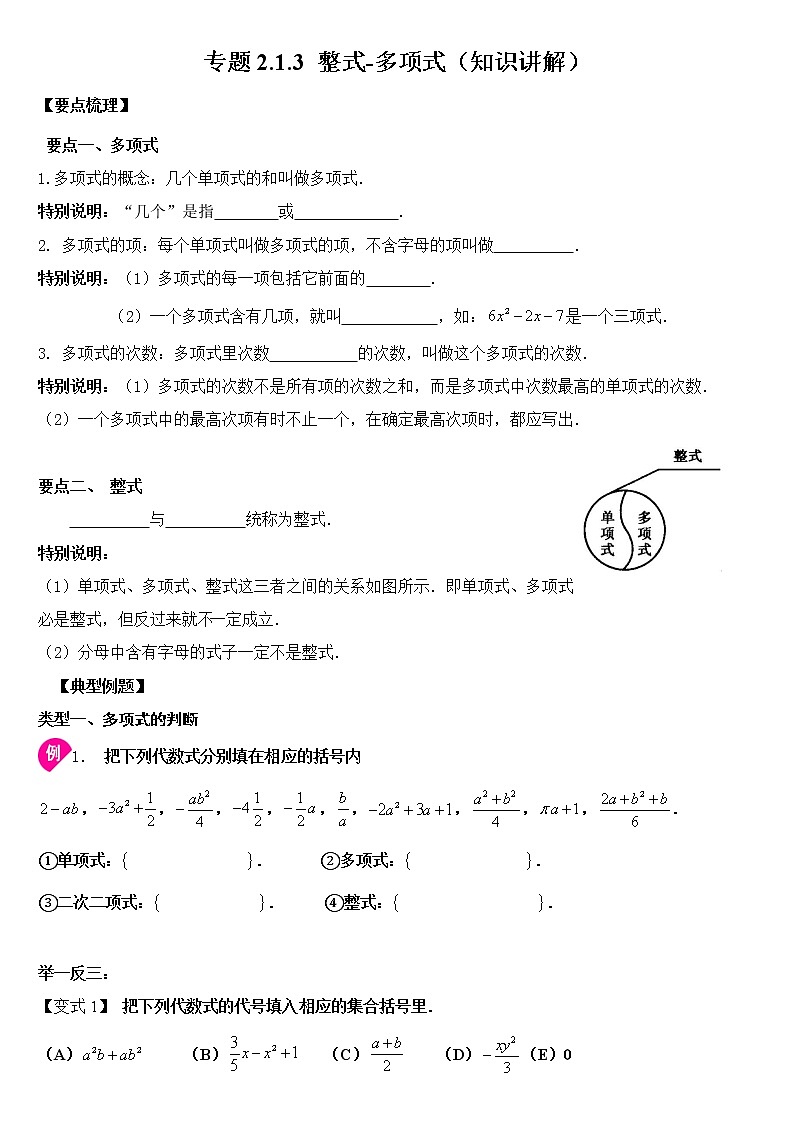 专题 2.1.3 整式-多项式（知识讲解）
【要点梳理】
要点一、多项式
1.多项式的概念：几个单项式的和叫做多项式．
特别说明：“几个”是指________或_____________．
2. 多项式的项：每个单项式叫做多项式的项，不含字母的项叫做__________．
特别说明：（1）多项式的每一项包括它前面的________．
（2）一个多项式含有几项，就叫____________，如：6x²－2x－7是一个三项式．
3. 多项式的次数：多项式里次数___________的次数，叫做这个多项式的次数．
特别说明：（1）多项式的次数不是所有项的次数之和，而是多项式中次数最高的单项式的次数．
（2）一个多项式中的最高次项有时不止一个，在确定最高次项时，都应写出．
要点二、 整式
__________与__________统称为整式．
特别说明：
（1）单项式、多项式、整式这三者之间的关系如图所示．即单项式、多项式
必是整式，但反过来就不一定成立．
（2）分母中含有字母的式子一定不是整式．
整式
单项式
多项式
【典型例题】
类型一、多项式的判断
例1． 把下列代数式分别填在相应的括号内
2－ab，－3a²＋1/2，－ab²/4，－4 1/2，－1/2 a，b/a，－2a²＋3a＋1，(a²＋b²)/4，πa＋1，(2a＋b²＋b)/6．
①单项式：{ }． ②多项式：{ }．
③二次二项式：{ }． ④整式：{ }．
举一反三：
【变式 1】 把下列代数式的代号填入相应的集合括号里．
（A）a²b＋ab² （B）3/5 x－x²＋1 （C）(a＋b)/2 （D）－xy²/3 （E）0